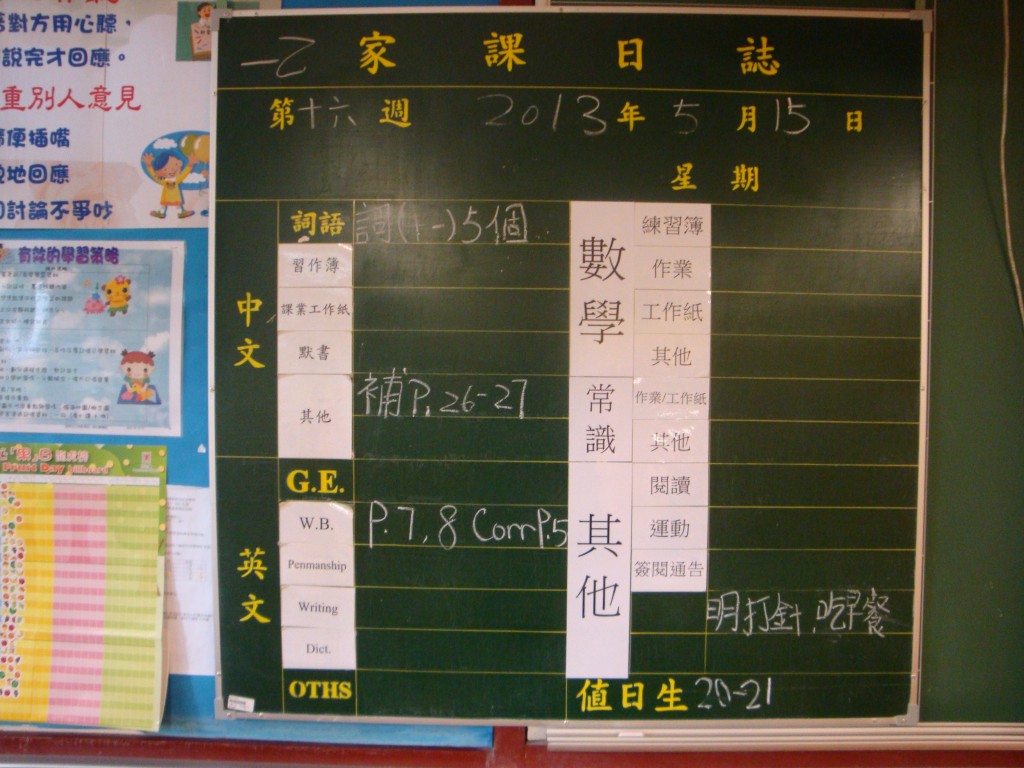 對方用心聽，
說完才回應。
重別人意見
便插嘴
地回應
討論不爭吵
有效的學習策略
Fruit Day
一乙 家課日誌
第十六週 2013年5月15日
星期
中文
詞語 詞(1-)5個
習作簿
課業工作紙
默書
其他 補P.26-27
英文
G.E.
W.B. P.7,8 Corr P.5
Penmanship
Writing
Dict.
OTHS
數學
練習簿
作業
工作紙
其他
常識
作業/工作紙
其他
其他
閱讀
運動
簽閱通告
明打針,吃早餐
值日生 20-21